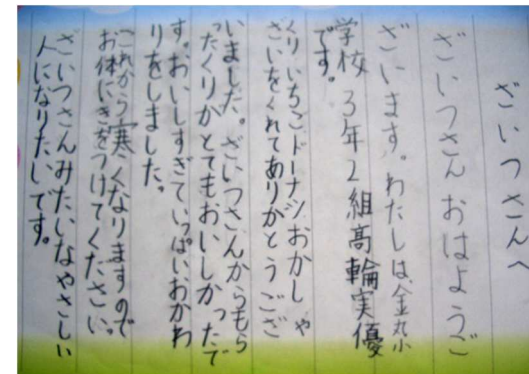 ざいつさんへ
ざいつさん おはようご
ざいます。わたしは、金丸小
学校 3年2組高輪実優
です。
くり いちご ドーナツ、おかし や
さいをくれてありがとうござ
いました。ざいつさんからもら
ったくりがとてもおいしかったで
す。おいしすぎていっぱいおかわ
りをしました。
これから寒くなりますので
お体にきをつけてください。
ざいつさんみたいなやさしい
人になりたいです。